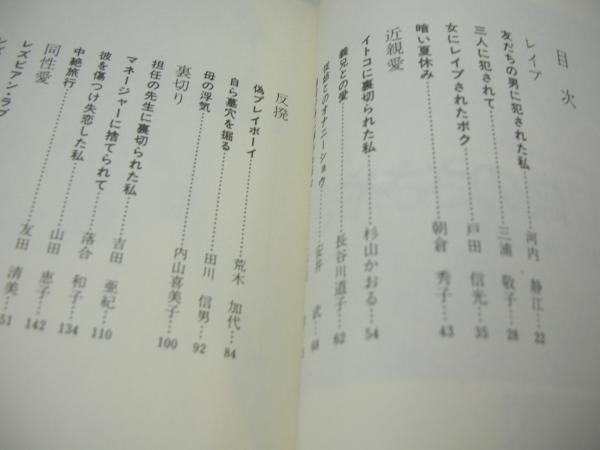 目次
レイプ
友だちの男に犯された私……河内 静江 22
三人に犯されて……三浦 敬子 28
女にレイプされたボク……戸田 信光 35
暗い夏休み……朝倉 秀子 43
近親愛
イトコに裏切られた私……杉山かおる 54
義兄との愛……長谷川道子 62
従姉とのオナニーショウ……安井 武 68
反撥
偽プレイボーイ……荒木 加代 84
自ら墓穴を掘る……田川 信男 92
母の浮気……内山喜美子 100
裏切り
担任の先生に裏切られた私……吉田 亜紀 110
マネージャーに捨てられて……落合 和子 134
彼を傷つけ失恋した私……山田 恵子 142
中絶旅行……友田 清美 151
同性愛
レズビアン・ラブ